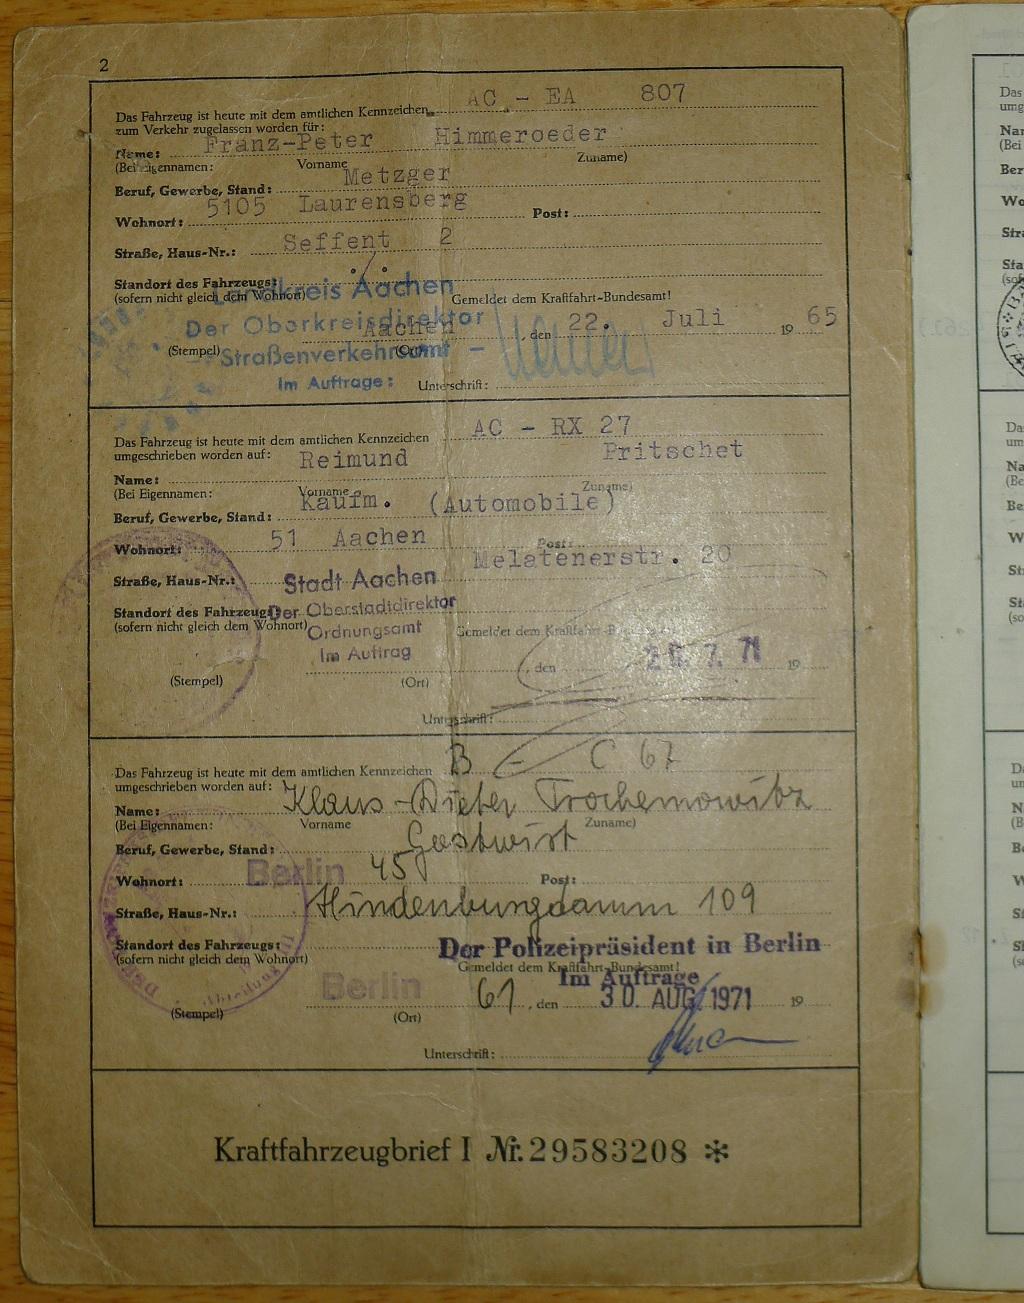 2
Das Fahrzeug ist heute mit dem amtlichen Kennzeichen AC - EA 807
zum Verkehr zugelassen worden für:
Name: Franz-Peter Himmeroeder
(Bei Eigennamen: Vorname Zuname)
Beruf, Gewerbe, Stand: Metzger
Wohnort: 5105 Laurensberg Post:
Straße, Haus-Nr.: Seffent 2
Standort des Fahrzeugs:
(sofern nicht gleich dem Wohnort)
Landkreis Aachen
Gemeldet dem Kraftfahrt-Bundesamt!
Der Oberkreisdirektor
Aachen, den 22. Juli 1965
(Stempel) (Ort)
- Straßenverkehrsamt -
Im Auftrage: Unterschrift:
Das Fahrzeug ist heute mit dem amtlichen Kennzeichen AC - RX 27
umgeschrieben worden auf:
Name: Reimund Pritschet
(Bei Eigennamen: Vorname Zuname)
Beruf, Gewerbe, Stand: Kaufm. (Automobile)
Wohnort: 51 Aachen Post:
Straße, Haus-Nr.: Melatenerstr. 20
Stadt Aachen
Standort des Fahrzeugs:
Der Oberstadtdirektor
(sofern nicht gleich dem Wohnort)
Ordnungsamt
Gemeldet dem Kraftfahrt-Bundesamt!
Im Auftrag
, den 7. 71 19
(Stempel) (Ort)
Unterschrift:
Das Fahrzeug ist heute mit dem amtlichen Kennzeichen B - C 67
umgeschrieben worden auf:
Name: Klaus-Dieter Trochemowitz
(Bei Eigennamen: Vorname Zuname)
Beruf, Gewerbe, Stand: Gastwirt
Wohnort: Berlin 45 Post:
Straße, Haus-Nr.: Hindenburgdamm 109
Standort des Fahrzeugs:
Der Polizeipräsident in Berlin
(sofern nicht gleich dem Wohnort)
Gemeldet dem Kraftfahrt-Bundesamt!
Im Auftrage
Berlin 61, den 30. AUG. 1971 19
(Stempel) (Ort)
Unterschrift:
Kraftfahrzeugbrief I Nr. 29583208 *